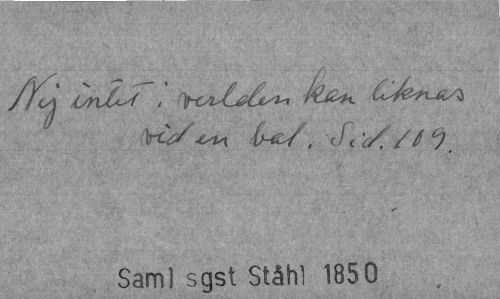 Nej intet i verlden kan liknas
vid en bal. Sid. 109.
Saml sgst Ståhl 1850